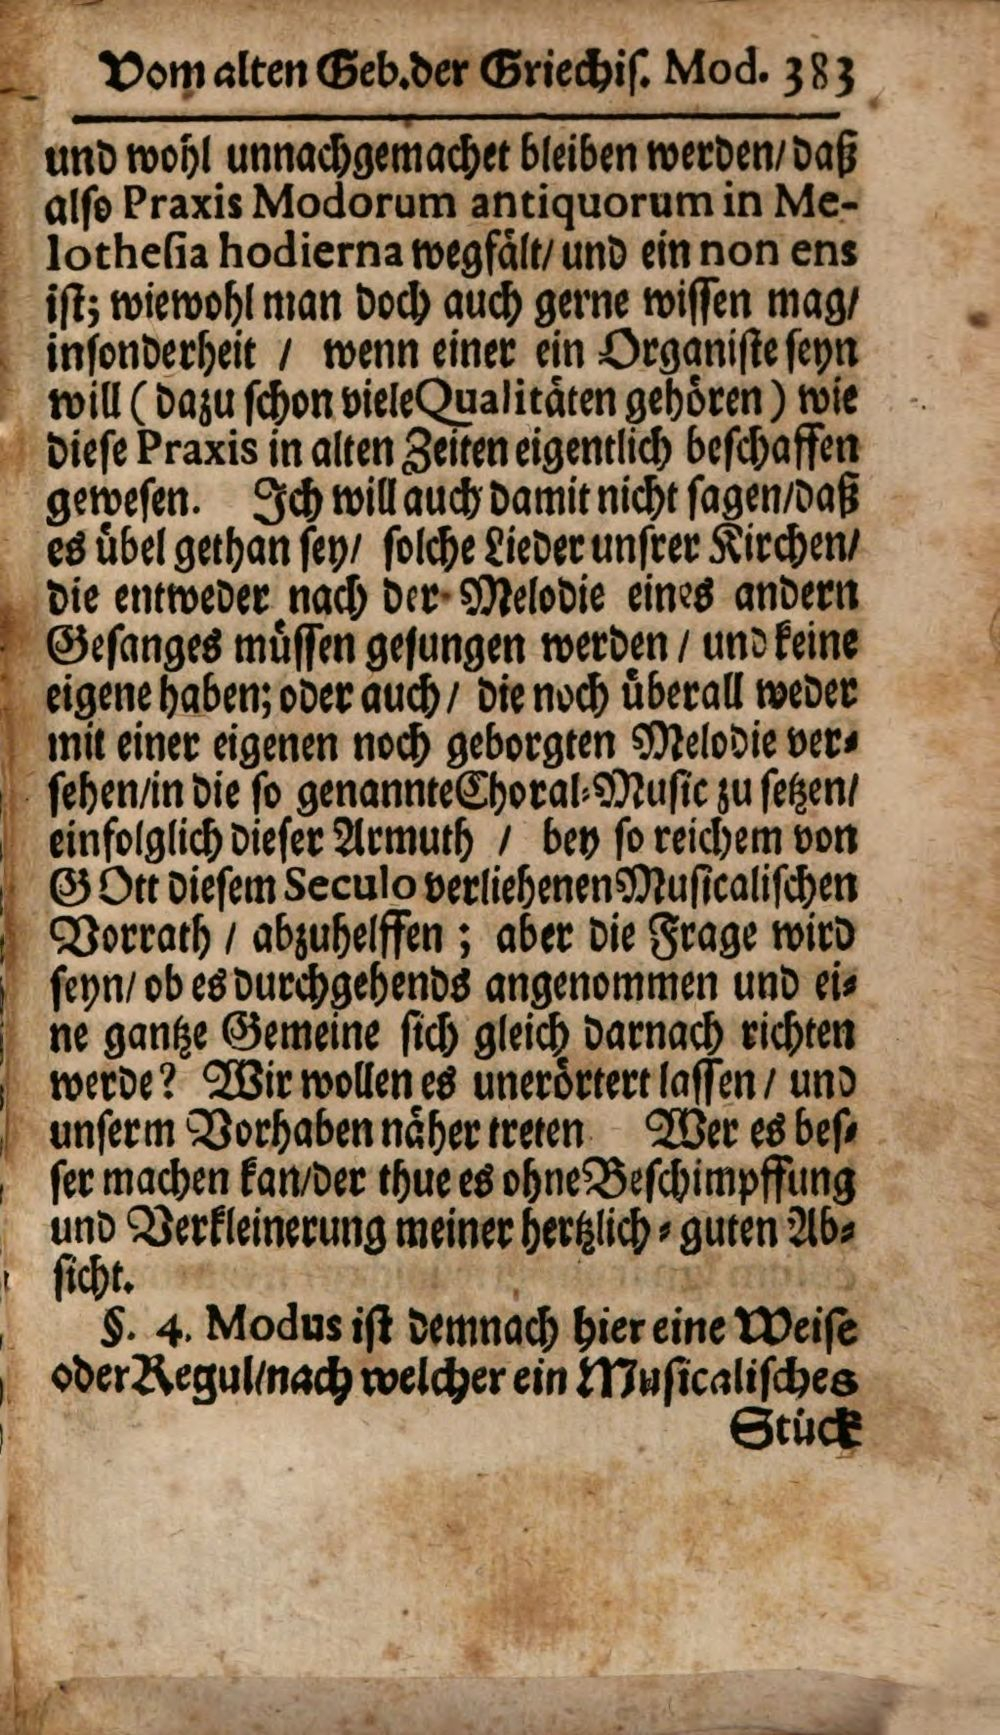 Vom alten Geb. der Griechis. Mod. 383
und wohl unnachgemachet bleiben werden/ daß
also Praxis Modorum antiquorum in Me-
lothesia hodierna wegfält/ und ein non ens
ist; wiewohl man doch auch gerne wissen mag/
insonderheit / wenn einer ein Organiste seyn
will ( dazu schon viele Qualitäten gehören ) wie
diese Praxis in alten Zeiten eigentlich beschaffen
gewesen. Ich will auch damit nicht sagen/ daß
es übel gethan sey/ solche Lieder unsrer Kirchen/
die entweder nach der Melodie eines andern
Gesanges müssen gesungen werden / und keine
eigene haben; oder auch / die noch überall weder
mit einer eigenen noch geborgten Melodie ver-
sehen/in die so genannte Choral-Music zu setzen/
einfolglich dieser Armuth / bey so reichem von
GOtt diesem Seculo verliehenen Musicalischen
Vorrath / abzuhelffen ; aber die Frage wird
seyn/ ob es durchgehends angenommen und ei-
ne gantze Gemeine sich gleich darnach richten
werde? Wir wollen es unerörtert lassen / und
unserm Vorhaben näher treten Wer es bes-
ser machen kan/der thue es ohne Beschimpffung
und Verkleinerung meiner hertzlich-guten Ab-
sicht.
§. 4. Modus ist demnach hier eine Weise
oder Regul/nach welcher ein Musicalisches
Stück